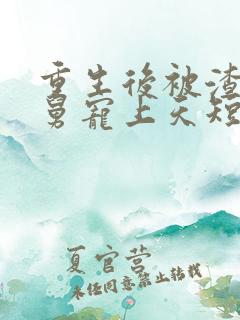 重生後被渣
舅寵上天短
夏官营
未经同意禁止转载